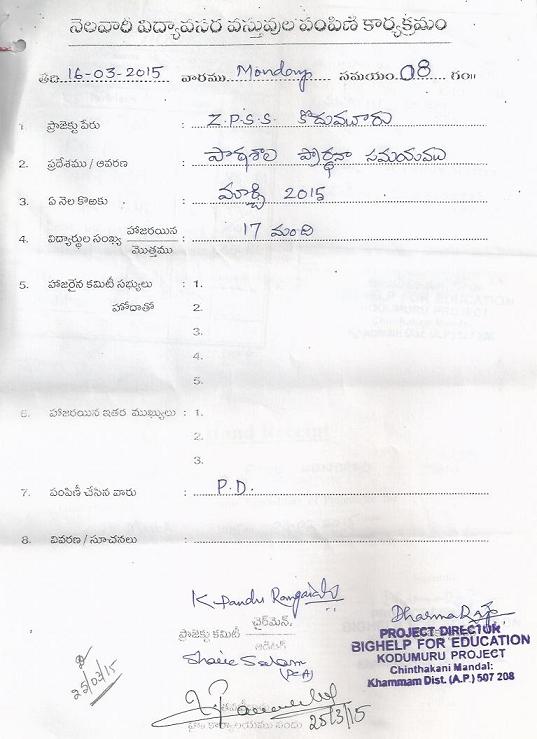 నెలవారి విద్యావసర వస్తువుల పంపిణి కార్యక్రమం
తేది 16-03-2015 వారము Monday సమయం 08 గం॥
1 ప్రాజెక్టు పేరు : Z.P.S.S. కొదుమూరు
2. ప్రదేశము / ఆవరణ : పాఠశాల ప్రార్థనా సమయము
3. ఏ నెల కొఱకు : మార్చి 2015
4. విద్యార్థుల సంఖ్య హాజరయిన / మొత్తము : 17 మంది
5. హాజరైన కమిటీ సభ్యులు : 1.
హోదాతో 2.
3.
4.
5.
6. హాజరయిన ఇతర ముఖ్యులు : 1.
2.
3.
7. పంపిణీ చేసిన వారు : P.D.
8. వివరణ / సూచనలు :
K Pandu Rangaiah
ఛైర్‌మెన్,
ప్రాజెక్టు కమిటీ
ఆడిటర్
(P-A)
25/03/15
25/3/15
కార్యాలయము నందు
Dharma Raju
PROJECT DIRECTOR
BIGHELP FOR EDUCATION
KODUMURU PROJECT
Chinthakani Mandal:
Khammam Dist. (A.P.) 507 208